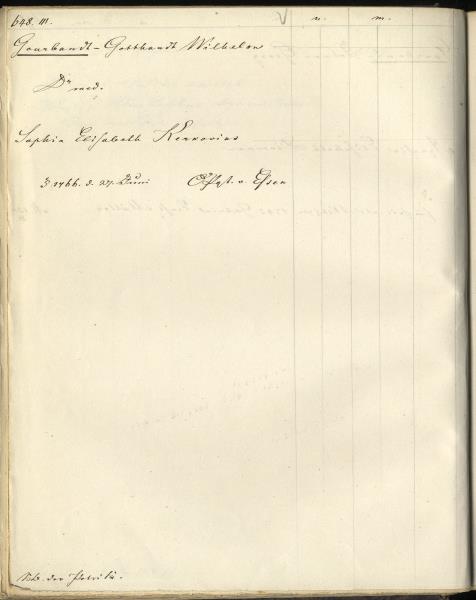 648. III. n. m.
Gourbandt - Gotthardt Wilhelm
Dr med.
Sophia Elisabeth Kerkovius
3. 1766. d. 27. Juni v. Essen
der Petrik.